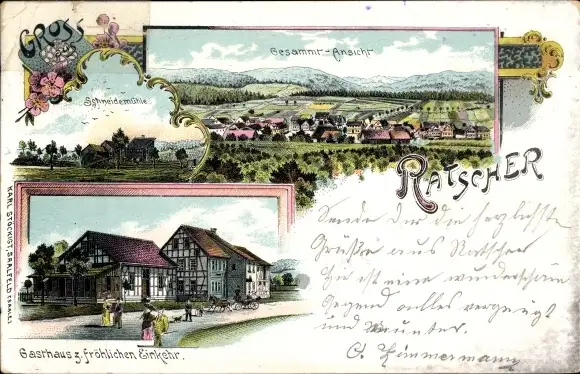 GRUSS aus
Gesammt-Ansicht
Schneidemühle.
RATSCHER
Sende Dir die herzlichste
Grüße aus Ratscher
hier ist eine wunderschöne
Gegend alles vergnügt
und munter.
C. Zimmermann
Gasthaus z. fröhlichen Einkehr.
KARL STOCKIGT, SAALFELD (SAALE)